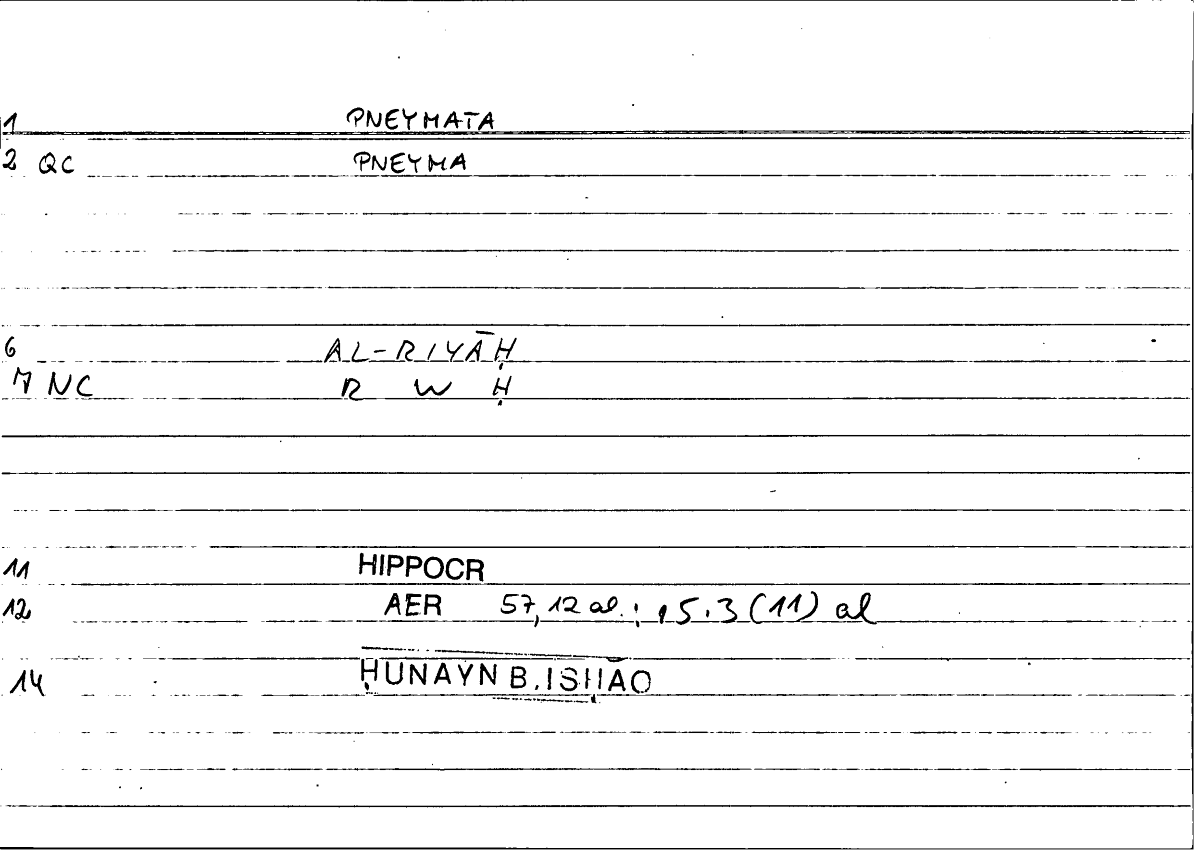 1 PNEYMATA
2 QC PNEYMA
6 AL-RIYĀḤ
7 NC R W Ḥ
11 HIPPOCR
12 AER 57,12 al.; 5.3 (11) al
14 ḤUNAYN B. ISḤĀQ